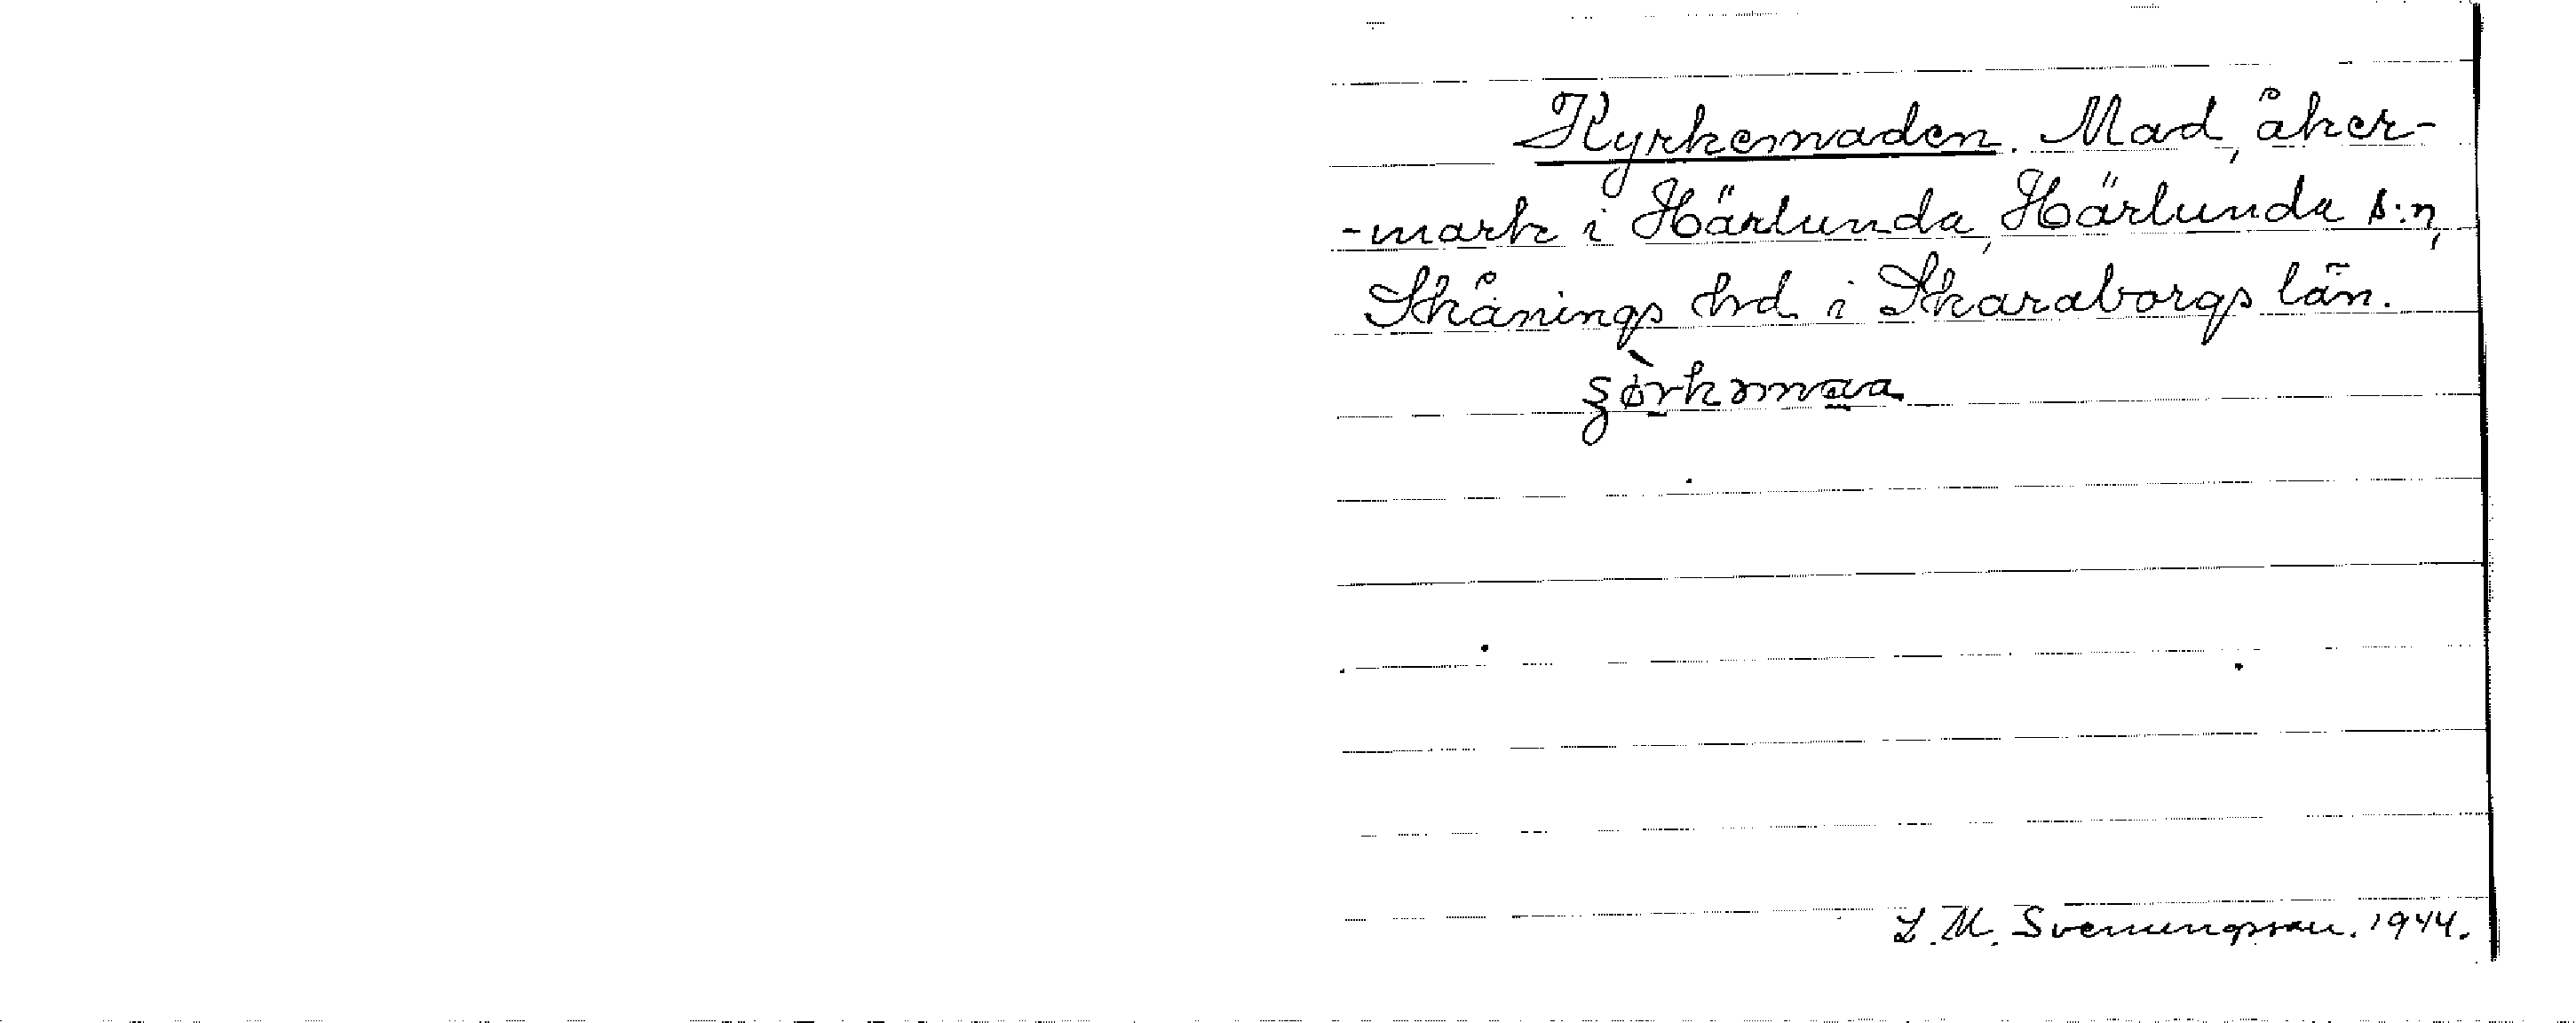 Kyrkemaden. Mad, åker-
-mark i Härlunda, Härlunda s:n,
Skånings hd i Skaraborgs län.
L. M. Svenungsson. 1944.